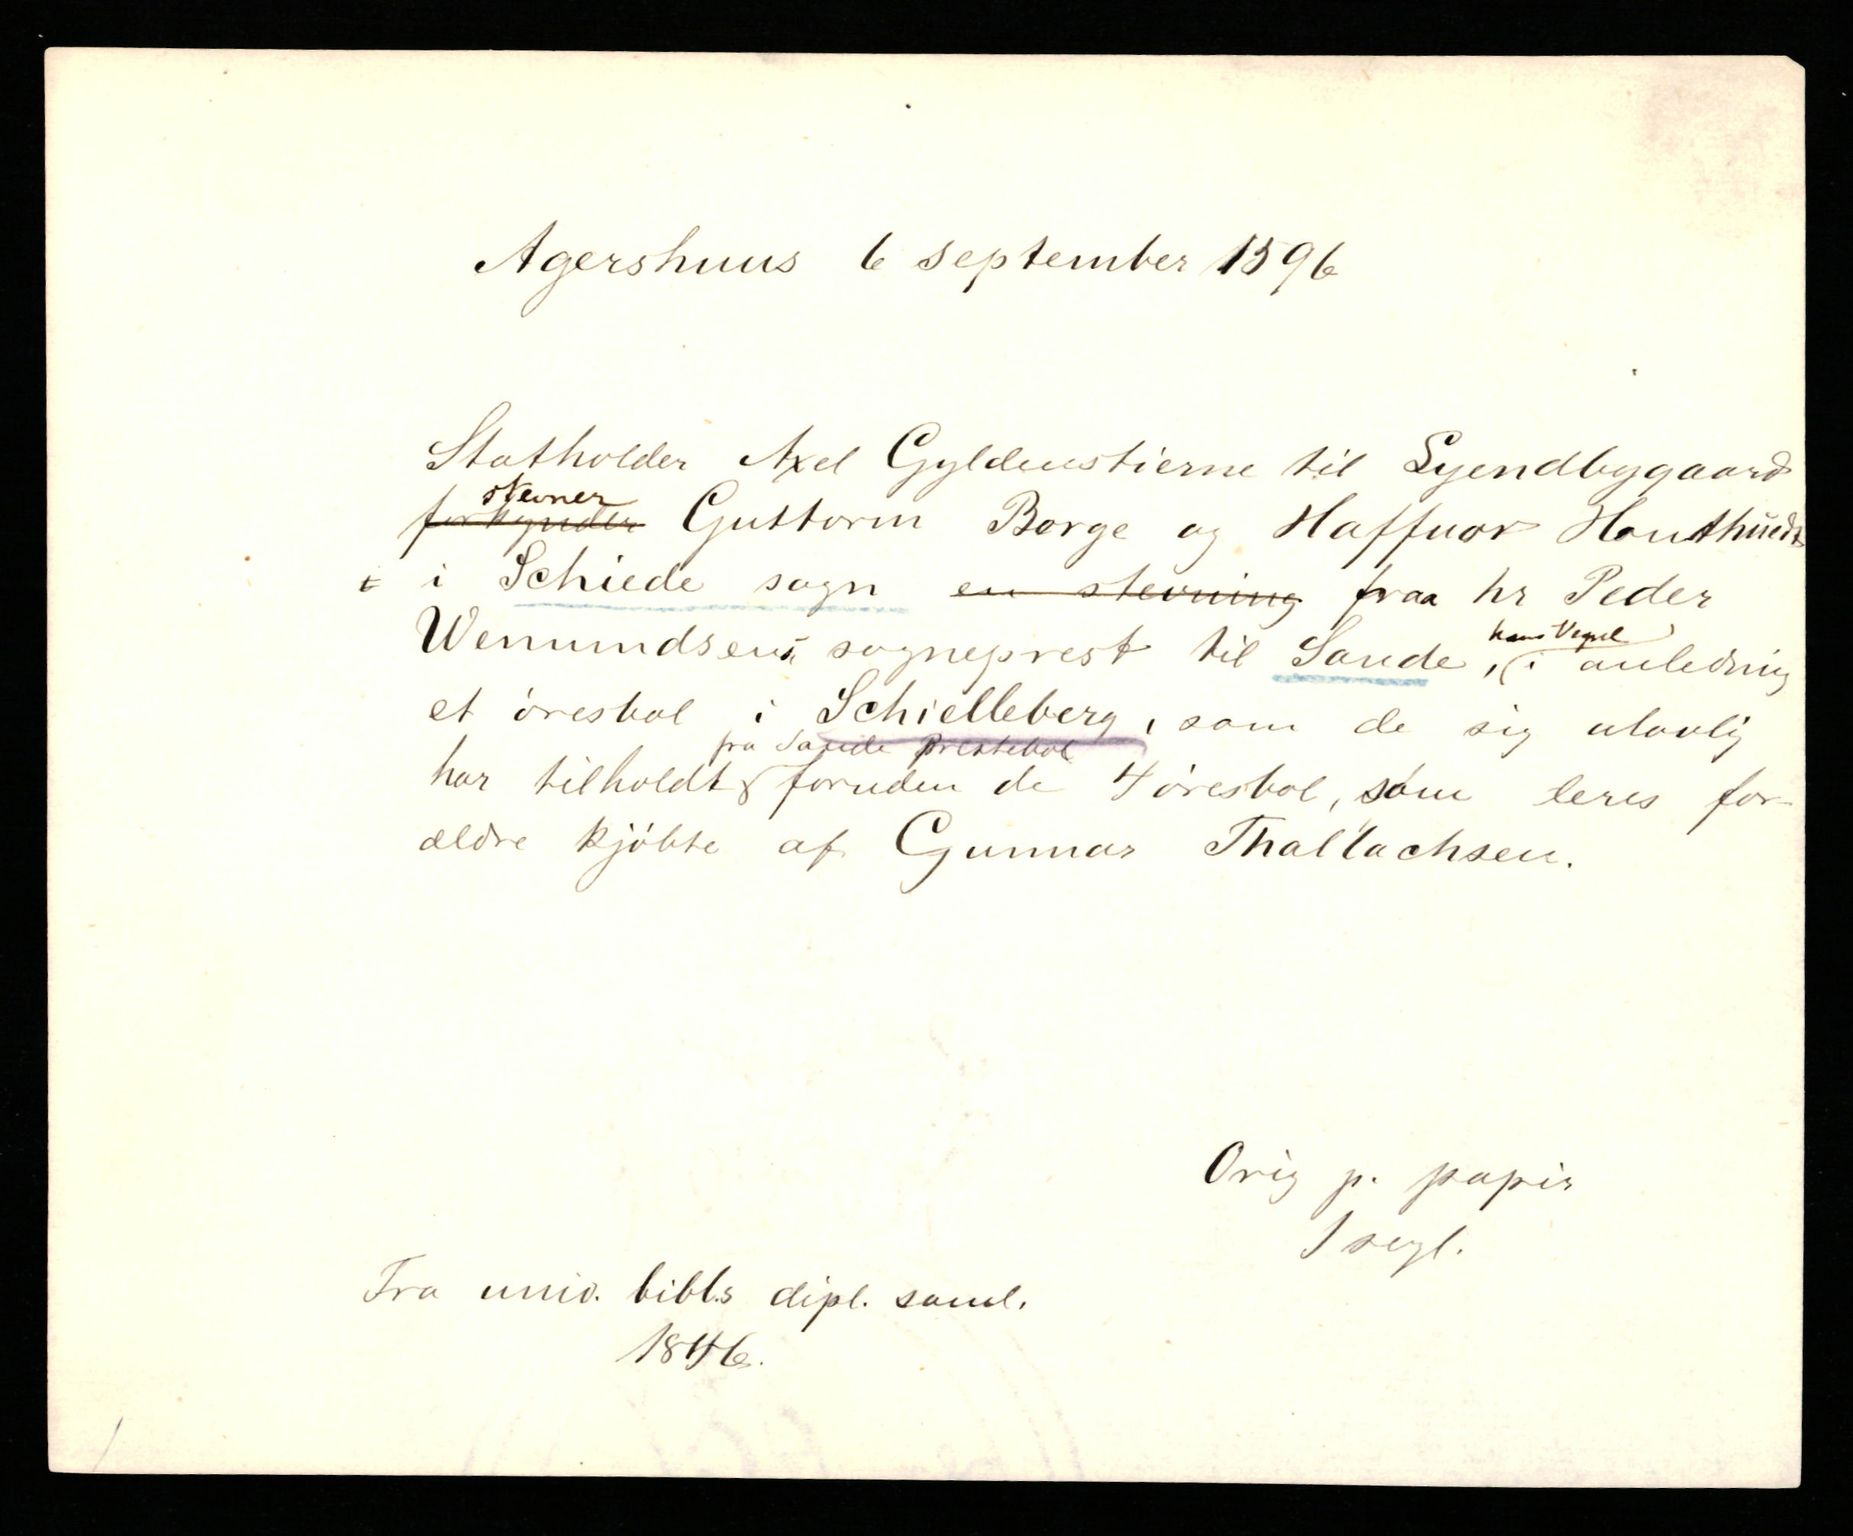 Agershuus 6 september 1596
Statholder Axel Gyldenstierne til Lyendbygaard
stevner
forkynder Guttorm Borge og Haffuor Honthuedt
i Schiede sogn en stevning fraa hr Peder
Wemundsens sogneprest til Sande, (i anledning
et øresbol i Schielleberg, som de sig ulovlig
fra Sande Prestebol
har tilholdt foruden de 4 øresbol, som leres for-
ældre kjøbte af Gunnar Thallachsen.
Orig p. papir
1 segl.
Fra univ. bibl.s dipl. saml.
1846.